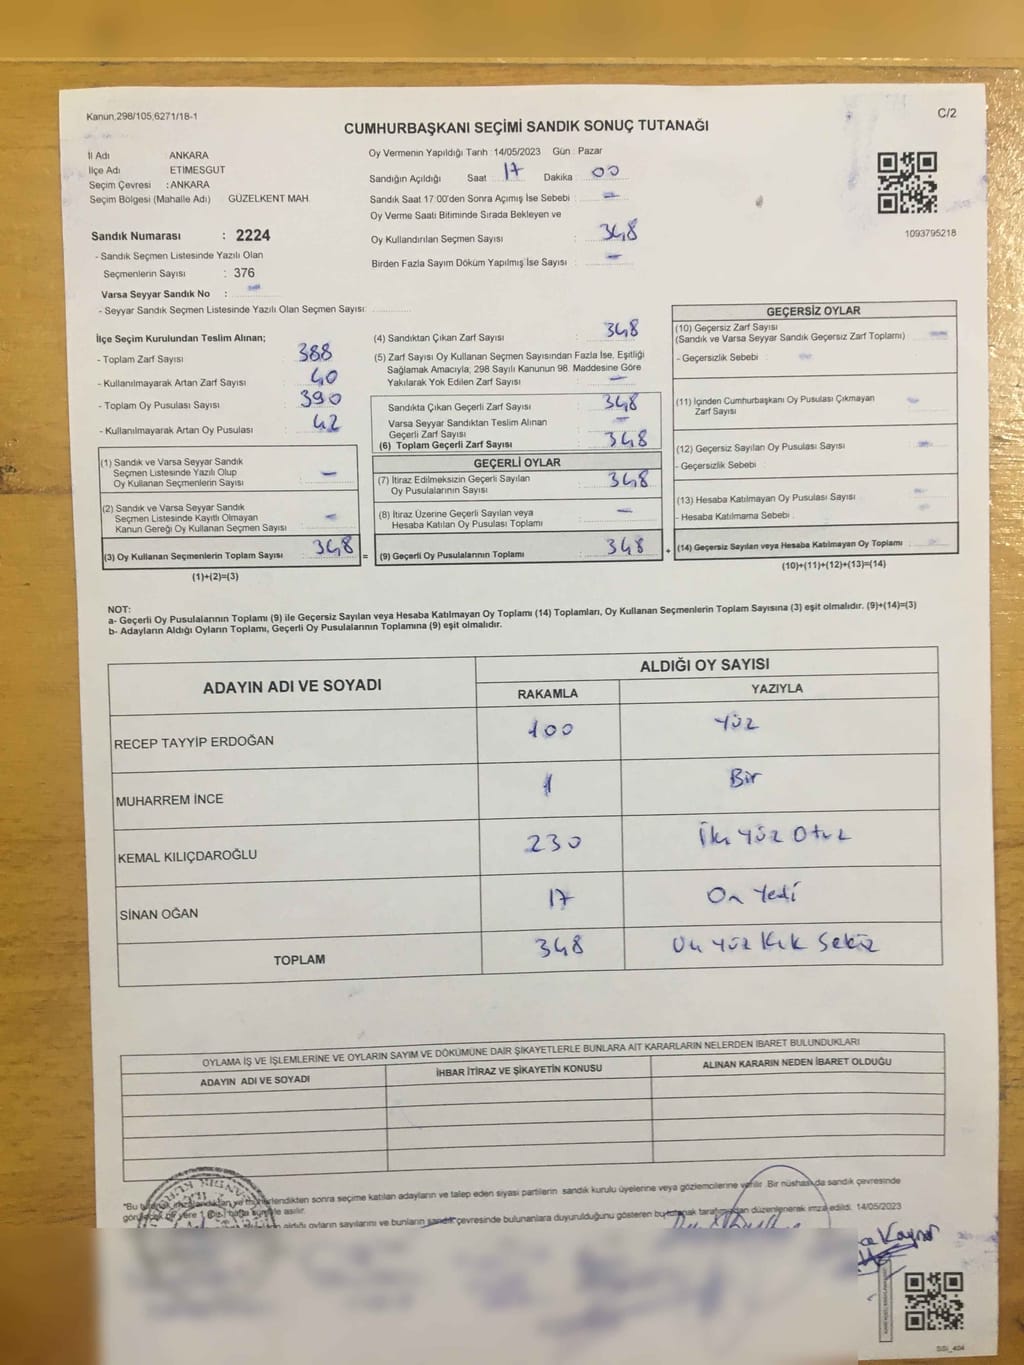 Kanun,298/105,6271/18-1
C/2
CUMHURBAŞKANI SEÇİMİ SANDIK SONUÇ TUTANAĞI
İl Adı ANKARA
İlçe Adı ETİMESGUT
Seçim Çevresi : ANKARA
Seçim Bölgesi (Mahalle Adı) GÜZELKENT MAH.
Oy Vermenin Yapıldığı Tarih :14/05/2023 Gün : Pazar
Sandığın Açıldığı Saat 17 Dakika : 00
Sandık Saat 17:00'den Sonra Açımış İse Sebebi : —
Oy Verme Saati Bitiminde Sırada Bekleyen ve
Oy Kullandırılan Seçmen Sayısı : 348
Birden Fazla Sayım Döküm Yapılmış İse Sayısı : —
1093795218
Sandık Numarası : 2224
- Sandık Seçmen Listesinde Yazılı Olan
Seçmenlerin Sayısı : 376
Varsa Seyyar Sandık No : —
- Seyyar Sandık Seçmen Listesinde Yazılı Olan Seçmen Sayısı:
İlçe Seçim Kurulundan Teslim Alınan;
- Toplam Zarf Sayısı : 388
- Kullanılmayarak Artan Zarf Sayısı : 40
- Toplam Oy Pusulası Sayısı : 390
- Kullanılmayarak Artan Oy Pusulası : 42
(1) Sandık ve Varsa Seyyar Sandık
Seçmen Listesinde Yazılı Olup
Oy Kullanan Seçmenlerin Sayısı : —
(2) Sandık ve Varsa Seyyar Sandık
Seçmen Listesinde Kayıtlı Olmayan
Kanun Gereği Oy Kullanan Seçmen Sayısı : —
(3) Oy Kullanan Seçmenlerin Toplam Sayısı : 348 =
(1)+(2)=(3)
(4) Sandıktan Çıkan Zarf Sayısı : 348
(5) Zarf Sayısı Oy Kullanan Seçmen Sayısından Fazla İse, Eşitliği
Sağlamak Amacıyla; 298 Sayılı Kanunun 98. Maddesine Göre
Yakılarak Yok Edilen Zarf Sayısı : —
Sandıkta Çıkan Geçerli Zarf Sayısı : 348
Varsa Seyyar Sandıktan Teslim Alınan
Geçerli Zarf Sayısı : —
(6) Toplam Geçerli Zarf Sayısı : 348
GEÇERLİ OYLAR
(7) İtiraz Edilmeksizin Geçerli Sayılan
Oy Pusulalarının Sayısı : 348
(8) İtiraz Üzerine Geçerli Sayılan veya
Hesaba Katılan Oy Pusulası Toplamı : —
(9) Geçerli Oy Pusulalarının Toplamı : 348 +
GEÇERSİZ OYLAR
(10) Geçersiz Zarf Sayısı
(Sandık ve Varsa Seyyar Sandık Geçersiz Zarf Toplamı) : —
- Geçersizlik Sebebi : —
(11) İçinden Cumhurbaşkanı Oy Pusulası Çıkmayan
Zarf Sayısı : —
(12) Geçersiz Sayılan Oy Pusulası Sayısı : —
- Geçersizlik Sebebi :
(13) Hesaba Katılmayan Oy Pusulası Sayısı : —
- Hesaba Katılmama Sebebi : —
(14) Geçersiz Sayılan veya Hesaba Katılmayan Oy Toplamı : —
(10)+(11)+(12)+(13)=(14)
NOT:
a- Geçerli Oy Pusulalarının Toplamı (9) ile Geçersiz Sayılan veya Hesaba Katılmayan Oy Toplamı (14) Toplamları, Oy Kullanan Seçmenlerin Toplam Sayısına (3) eşit olmalıdır. (9)+(14)=(3)
b- Adayların Aldığı Oyların Toplamı, Geçerli Oy Pusulalarının Toplamına (9) eşit olmalıdır.
ADAYIN ADI VE SOYADI ALDIĞI OY SAYISI
RAKAMLA YAZIYLA
RECEP TAYYİP ERDOĞAN 100 Yüz
MUHARREM İNCE 1 Bir
KEMAL KILIÇDAROĞLU 230 İki Yüz Otuz
SİNAN OĞAN 17 On Yedi
TOPLAM 348 Üç Yüz Kırk Sekiz
OYLAMA İŞ VE İŞLEMLERİNE VE OYLARIN SAYIM VE DÖKÜMÜNE DAİR ŞİKAYETLERLE BUNLARA AİT KARARLARIN NELERDEN İBARET BULUNDUKLARI
ADAYIN ADI VE SOYADI İHBAR İTİRAZ VE ŞİKAYETİN KONUSU ALINAN KARARIN NEDEN İBARET OLDUĞU
*Bu tutanak imzalandıktan ve mühürlendikten sonra seçime katılan adayların ve talep eden siyasi partilerin sandık kurulu üyelerine veya gözlemcilerine verilir. Bir nüshası da sandık çevresinde
görülecek bir yere 1 (Bir) hafta süreyle asılır.
aldığı oyların sayılarını ve bunların sandık çevresinde bulunanlara duyurulduğunu gösteren bu tutanak tarafımızdan düzenlenerek imza edildi. 14/05/2023